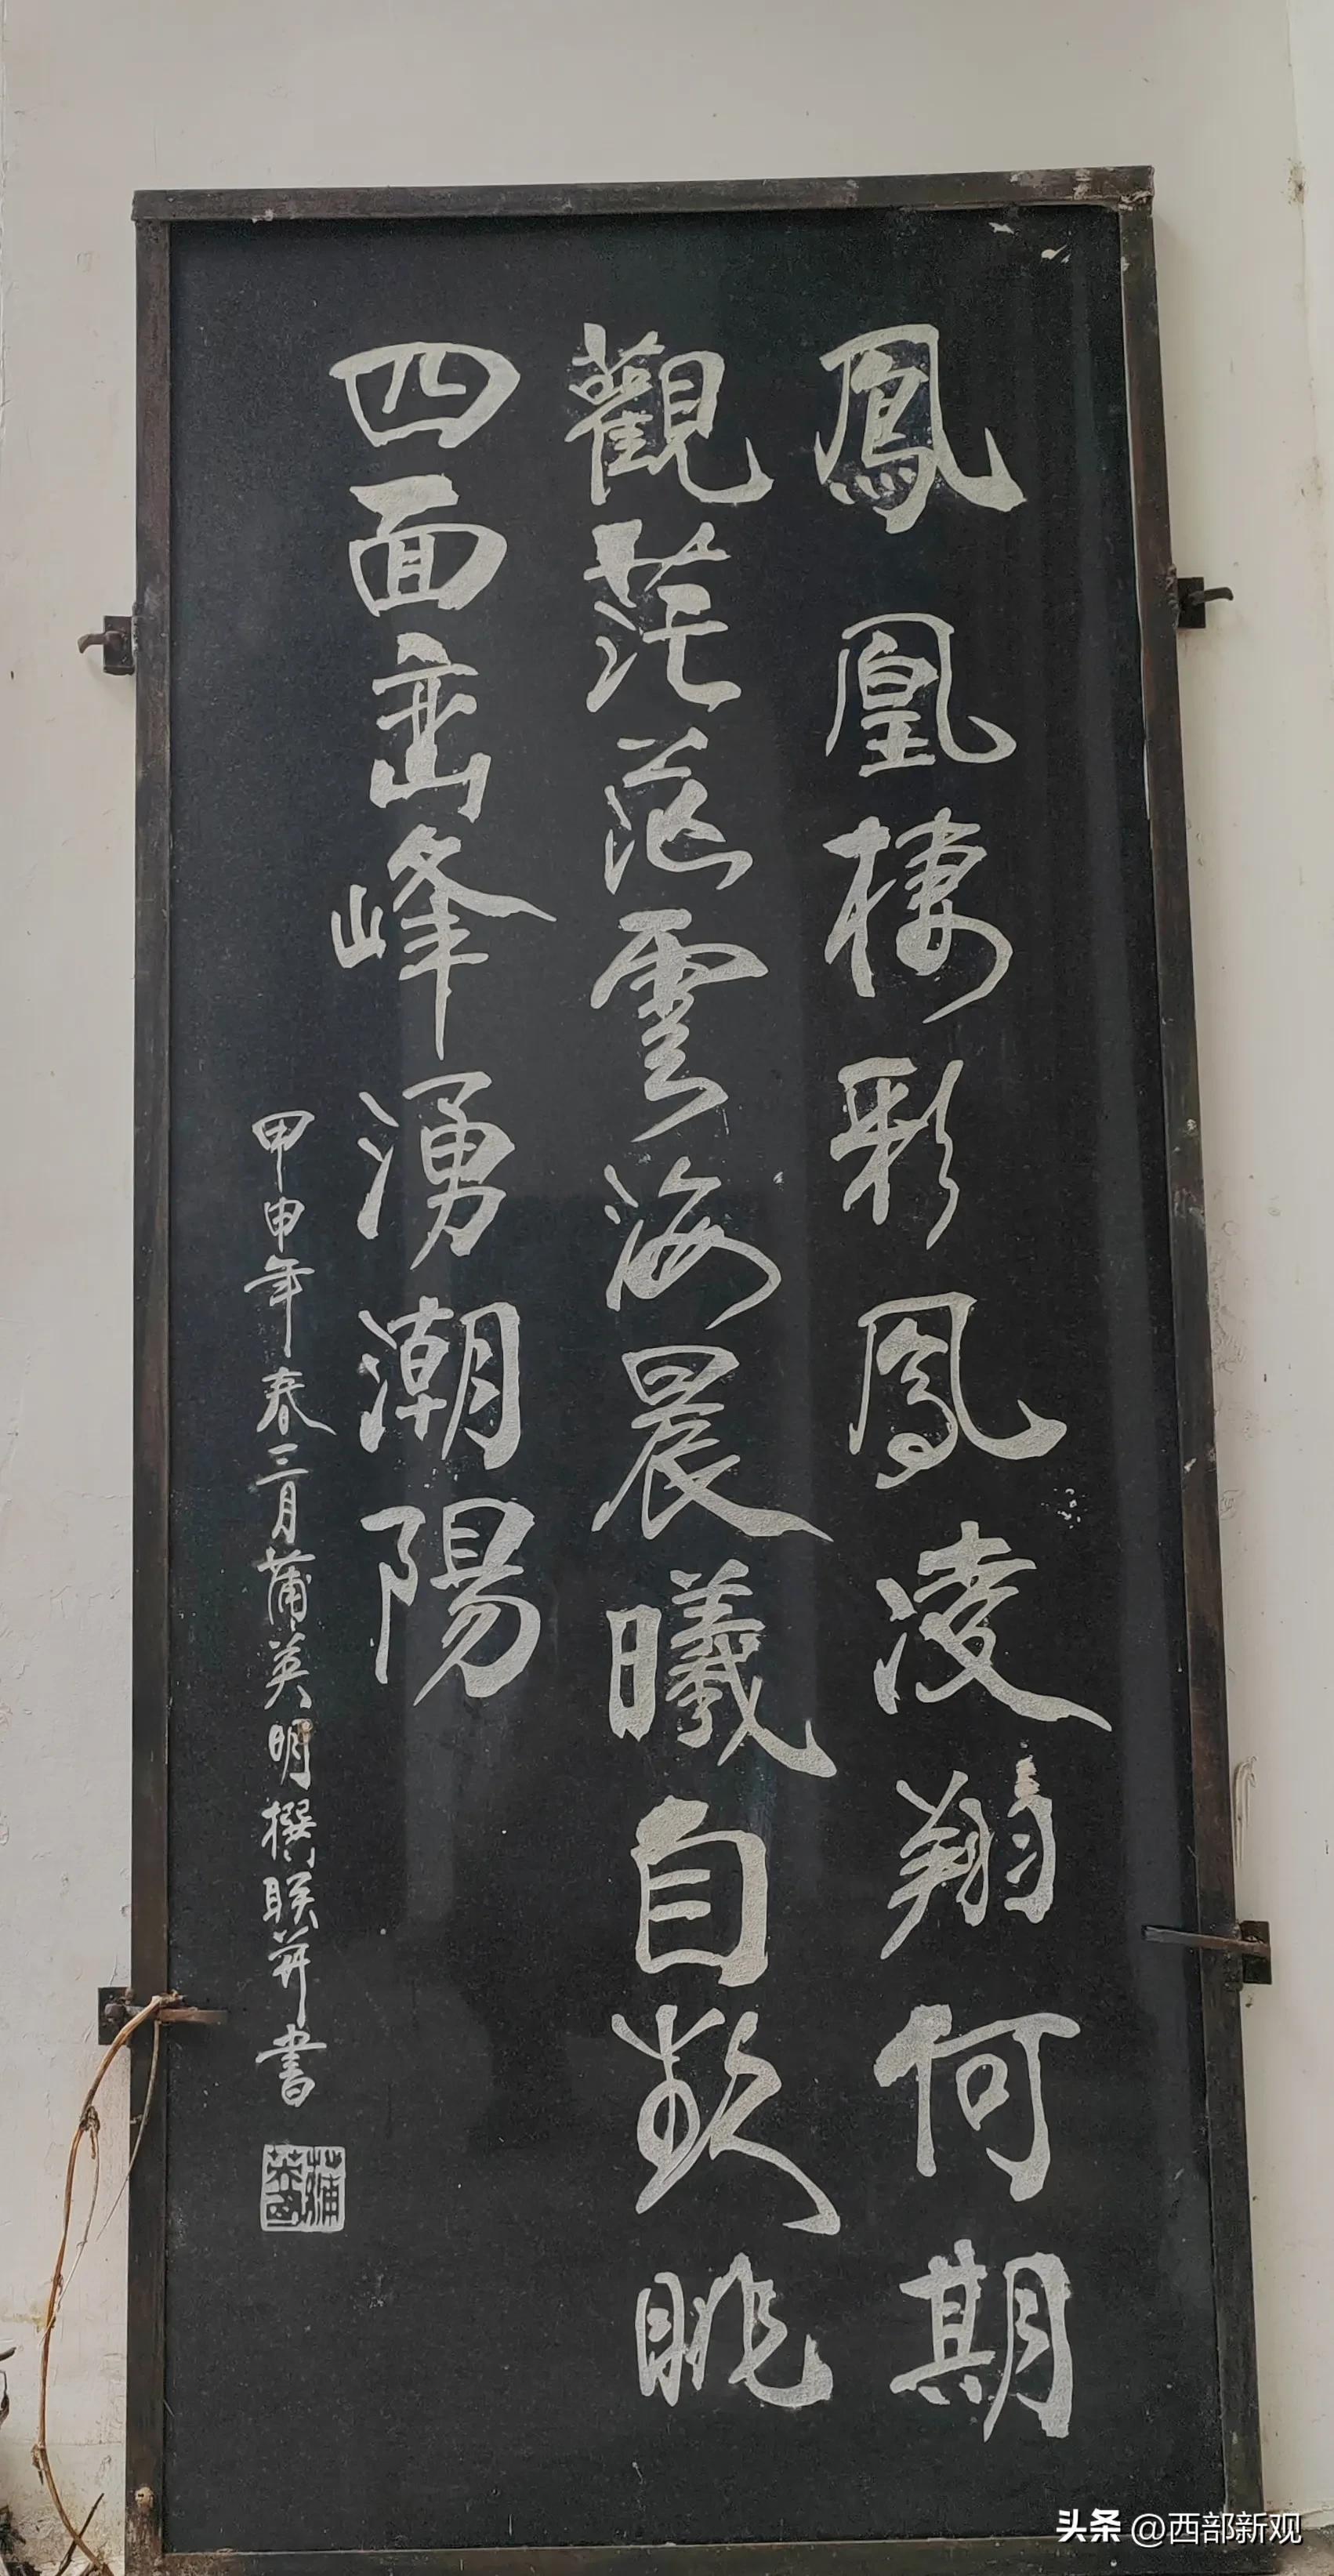 鳳凰棲彩鳳凌翔何期
觀茫茫雲海晨曦自眺
四面峦峰湧潮陽
甲申年春三月蒲英明撰联并書
蒲英明
头条 @西部新观